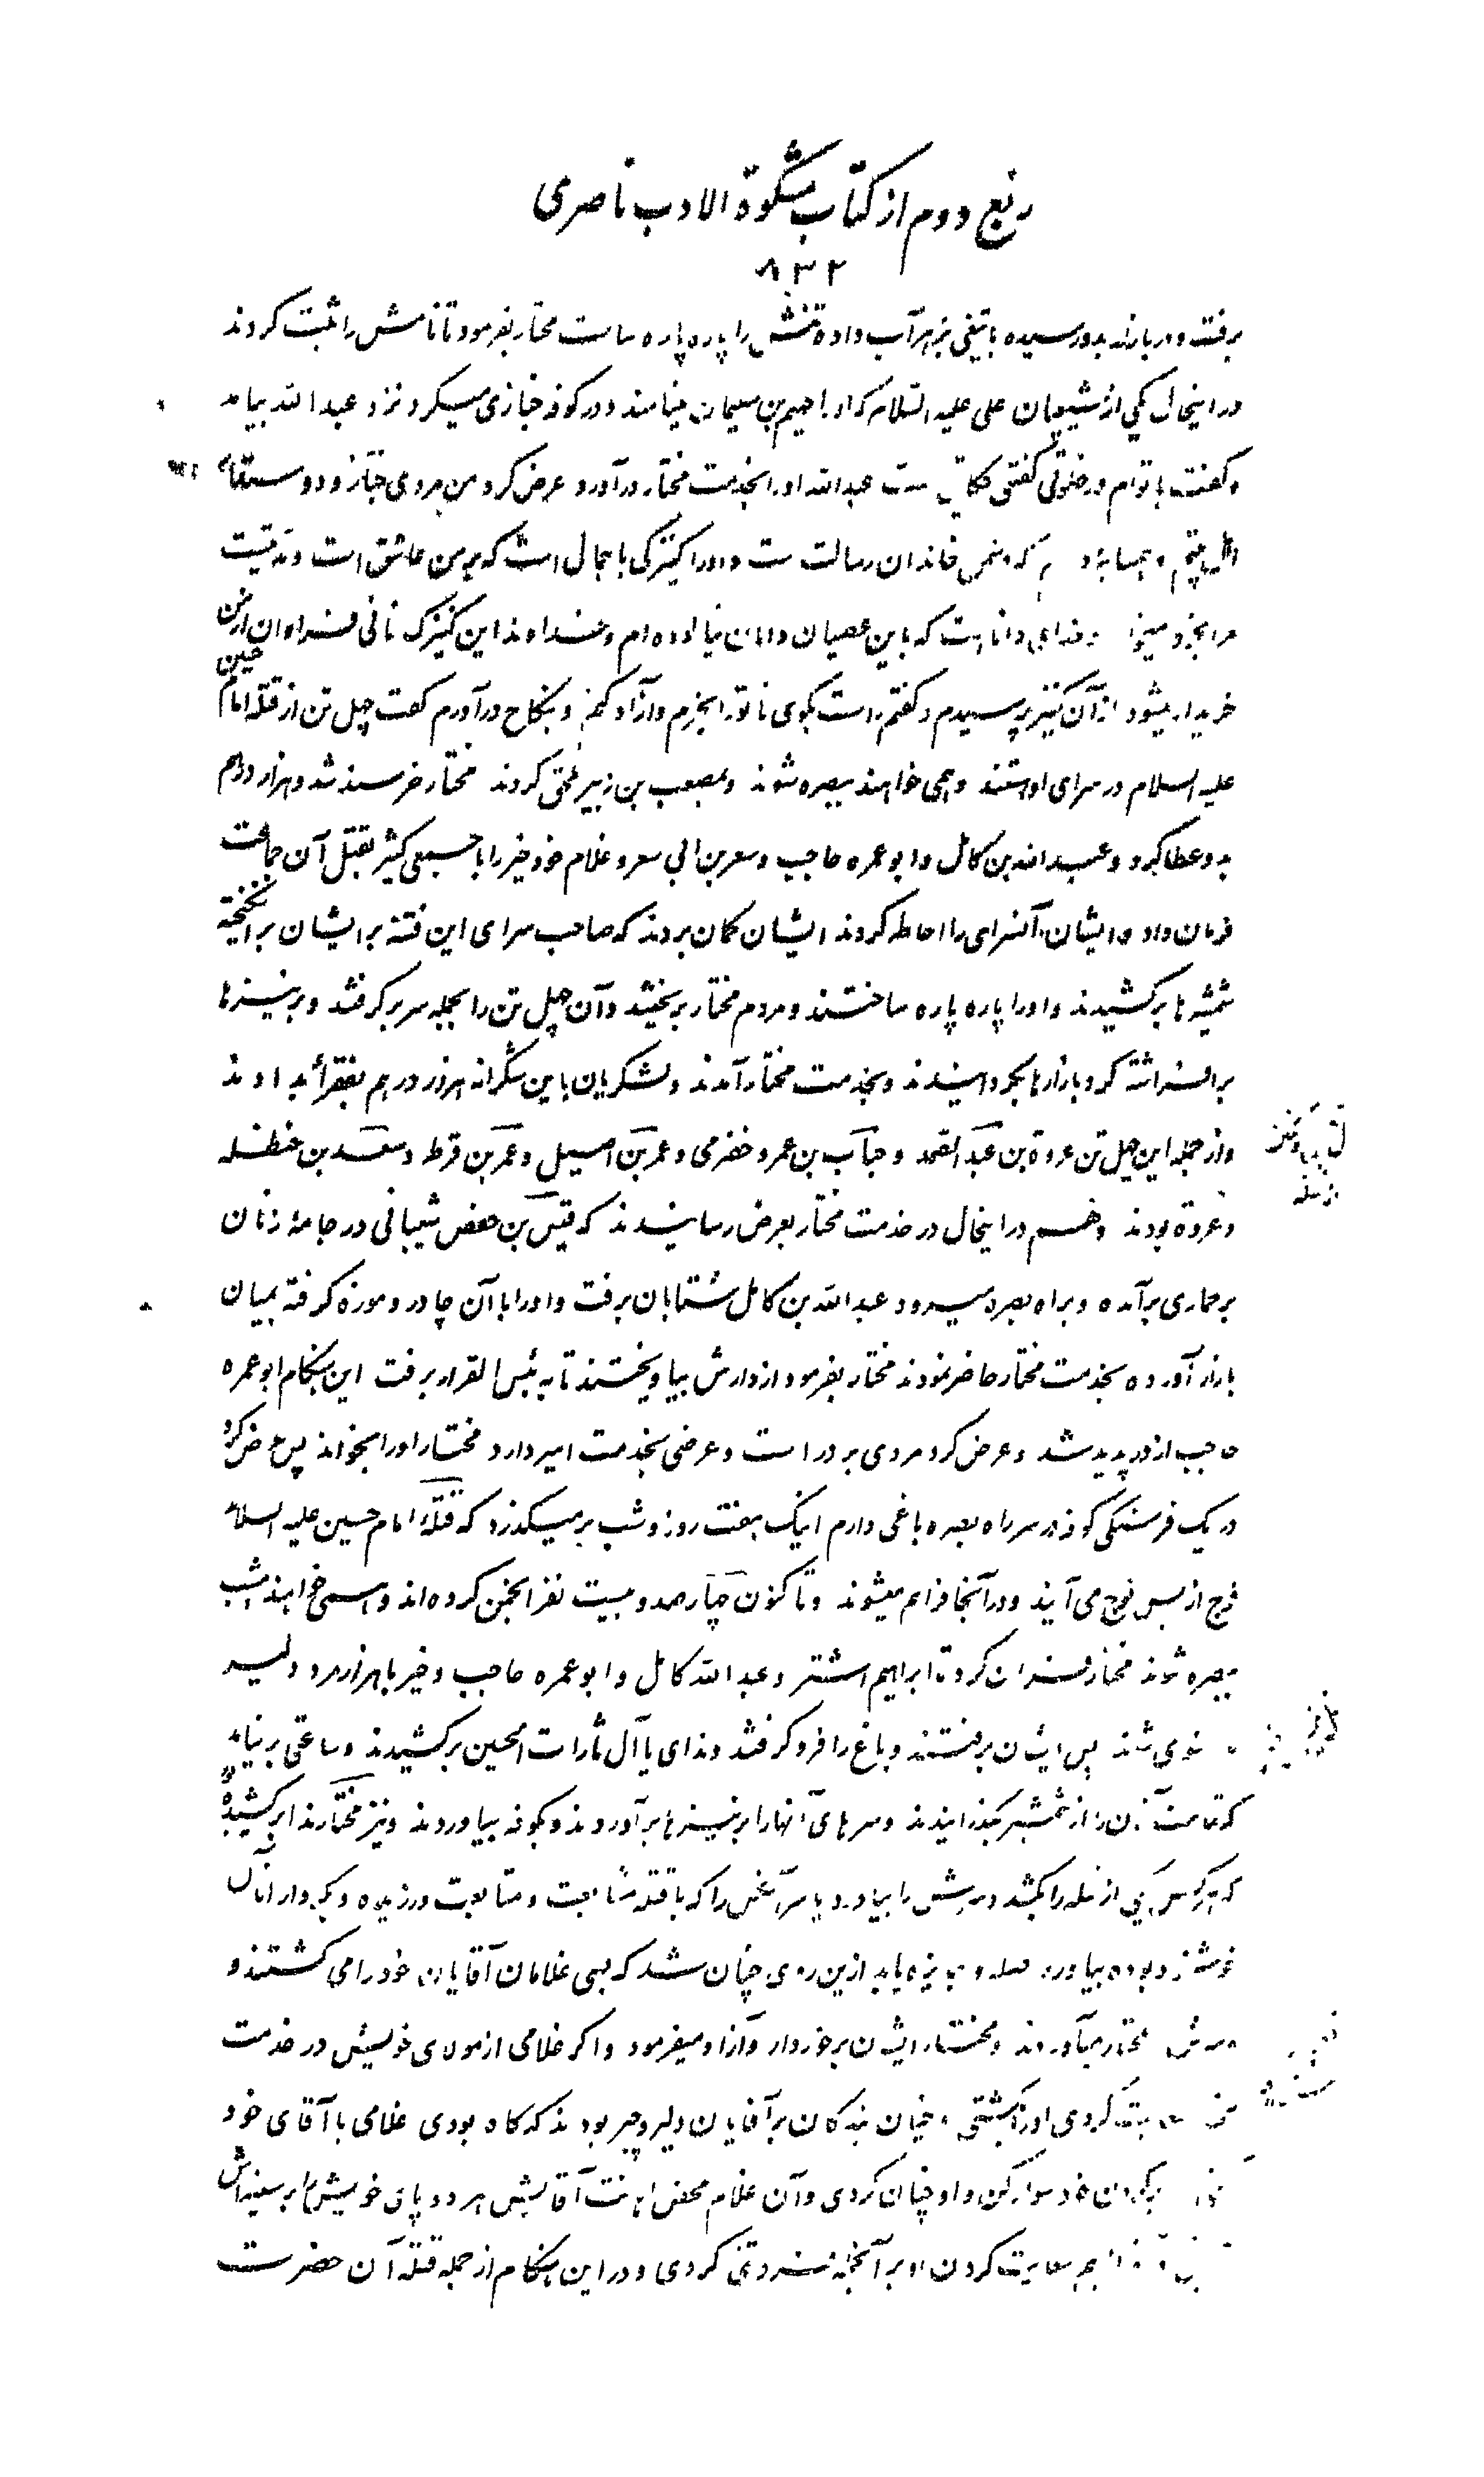 ربع دوم از کتاب مشکوة الادب ناصری
۸۳۲
برفت و در بازار بدو رسیده با تیغی بزهر آب داده تنش را پاره پاره ساخت مختار بفرمود تا نامش را ثبت کردند
در اینحال یکی از شیعیان علی علیه السلام که او را حیم بن سلیمان مینامند و در کوفه خبازی میکرد نزد عبدالله بیامد
و گفت با توام در خلوتی گفتنی عبدالله او را بخدمت مختار در آورد عرض کرد من مردی خباز و دوستدار
اهل بیتم و همسایهٔ دارم که دشمن خاندان رسالت است و او را کنیزکی با جمال است که بر من عاشق است و مدتیست
مرا بخود میخواند و خدای دانا است که باین عصیان دامان نیالوده‌ام و خداوند این کنیزک نانی فراوان از من
خریدار میشود از آن کنیز پرسیدم و گفتم راست بگوی تا تو را بخرم و آزاد کنم و بنکاح در آورم گفت چهل تن از قتلهٔ امام حسین
علیه السلام در سرای او هستند و همی خواهند ببصره شوند و بمصعب بن زبیر ملحق کردند مختار خرسند شد و هزار درهم
بدو عطا کرد و عبدالله بن کامل و ابو عمره حاجب و سعر بن ابی سعر و غلام خود خیر را با جمعی کثیر بقتل آن جماعت
فرمان داد و ایشان آنسرای را احاطه کردند ایشان گمان بردند که صاحب سرای این فتنه بر ایشان برانگیخته
شمشیرها برکشیدند و او را پاره پاره ساختند و مردم مختار بریختند و آن چهل تن را بجمله سر بر گرفتند و بر نیزه‌ها
برافراشته گرد بازارها بگردانیدند و بخدمت مختار آمدند و لشکریان باین شکرانه هزار درهم بفقراء بدادند
و از جمله این چهل تن عروة بن عبد الصمد و خباب بن عمرو حضرمی و عمر بن اسیل و عمر بن قرط و سعد بن حنظله
و عروة بودند و هم در اینحال در خدمت مختار بعرض رسانیدند که قیس بن حفص شیبانی در جامهٔ زنان
بر حماری برآمده و براه بصره میرود عبدالله بن کامل شتابان برفت و او را با آن چادر و موزه گرفته بمیان
بازار آورده بخدمت مختار حاضر نمودند مختار بفرمود از دارش بیاویختند تا به بئس القرار برفت این هنگام ابو عمره
حاجب از در پدید شد و عرض کرد مردی بر در است و عرضی بخدمت امیر دارد مختار او را بخواند پس عرض کرد
در یک فرسنگی کوفه در سر راه بصره باغی دارم اینک هفت روز و شب بر میگذرد که قتلهٔ امام حسین علیه السلام
فوج از پس فوج می‌آیند و در آنجا فراهم میشوند و تاکنون چهارصد و بیست نفر انجمن کرده‌اند و همی خواهند امشب
ببصره شوند مختار فرمان کرد تا ابراهیم اشتر و عبدالله کامل و ابو عمره حاجب و خیر با هزار مرد دلیر
شدند پس ایشان برفتند و باغ را فرو گرفتند و ندای یا آل ثارات الحسین برکشیدند و ساعتی بر نیامد
که تمامت آنان را از شمشیر بگذرانیدند و سرهای آنها را بر نیزه‌ها برآوردند و بکوفه بیاوردند و نیز مختار ندا برکشیده
که هر کس یکی از قتله را بکشد و سرش را بیاورد یا سر آنکس را که با قتله متابعت ورزیده و بکردار آنان
خوشنود بوده بیاورد صله و جایزه یابد ازین روی چنان شد که بسی غلامان آقایان خود را می کشتند و
سرش بمختار میآوردند و مختار ایشان برخوردار و آزاد میفرمود و اگر غلامی از مولای خویش در خدمت
کردی او را بکشتی و چنان بندگان بر آقایان دلیر و چیر بودند که گاه بودی غلامی با آقای خود
بگردن خود سوار کن و او چنان کردی و آن غلام محض اهانت آقایش هر دو پای خویش را بر سینه‌اش
سعایت کردن او بر آنجناب فروتنی کردی و در این هنگام از جمله قتلهٔ آن حضرت